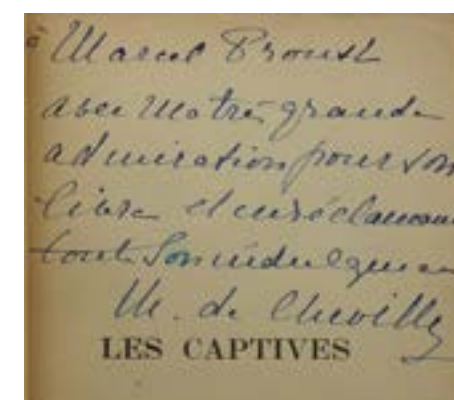 à Marcel Proust
avec ma très grande
admiration pour son
livre et en réclamant
toute son indulgence
M. de Chevilly
LES CAPTIVES